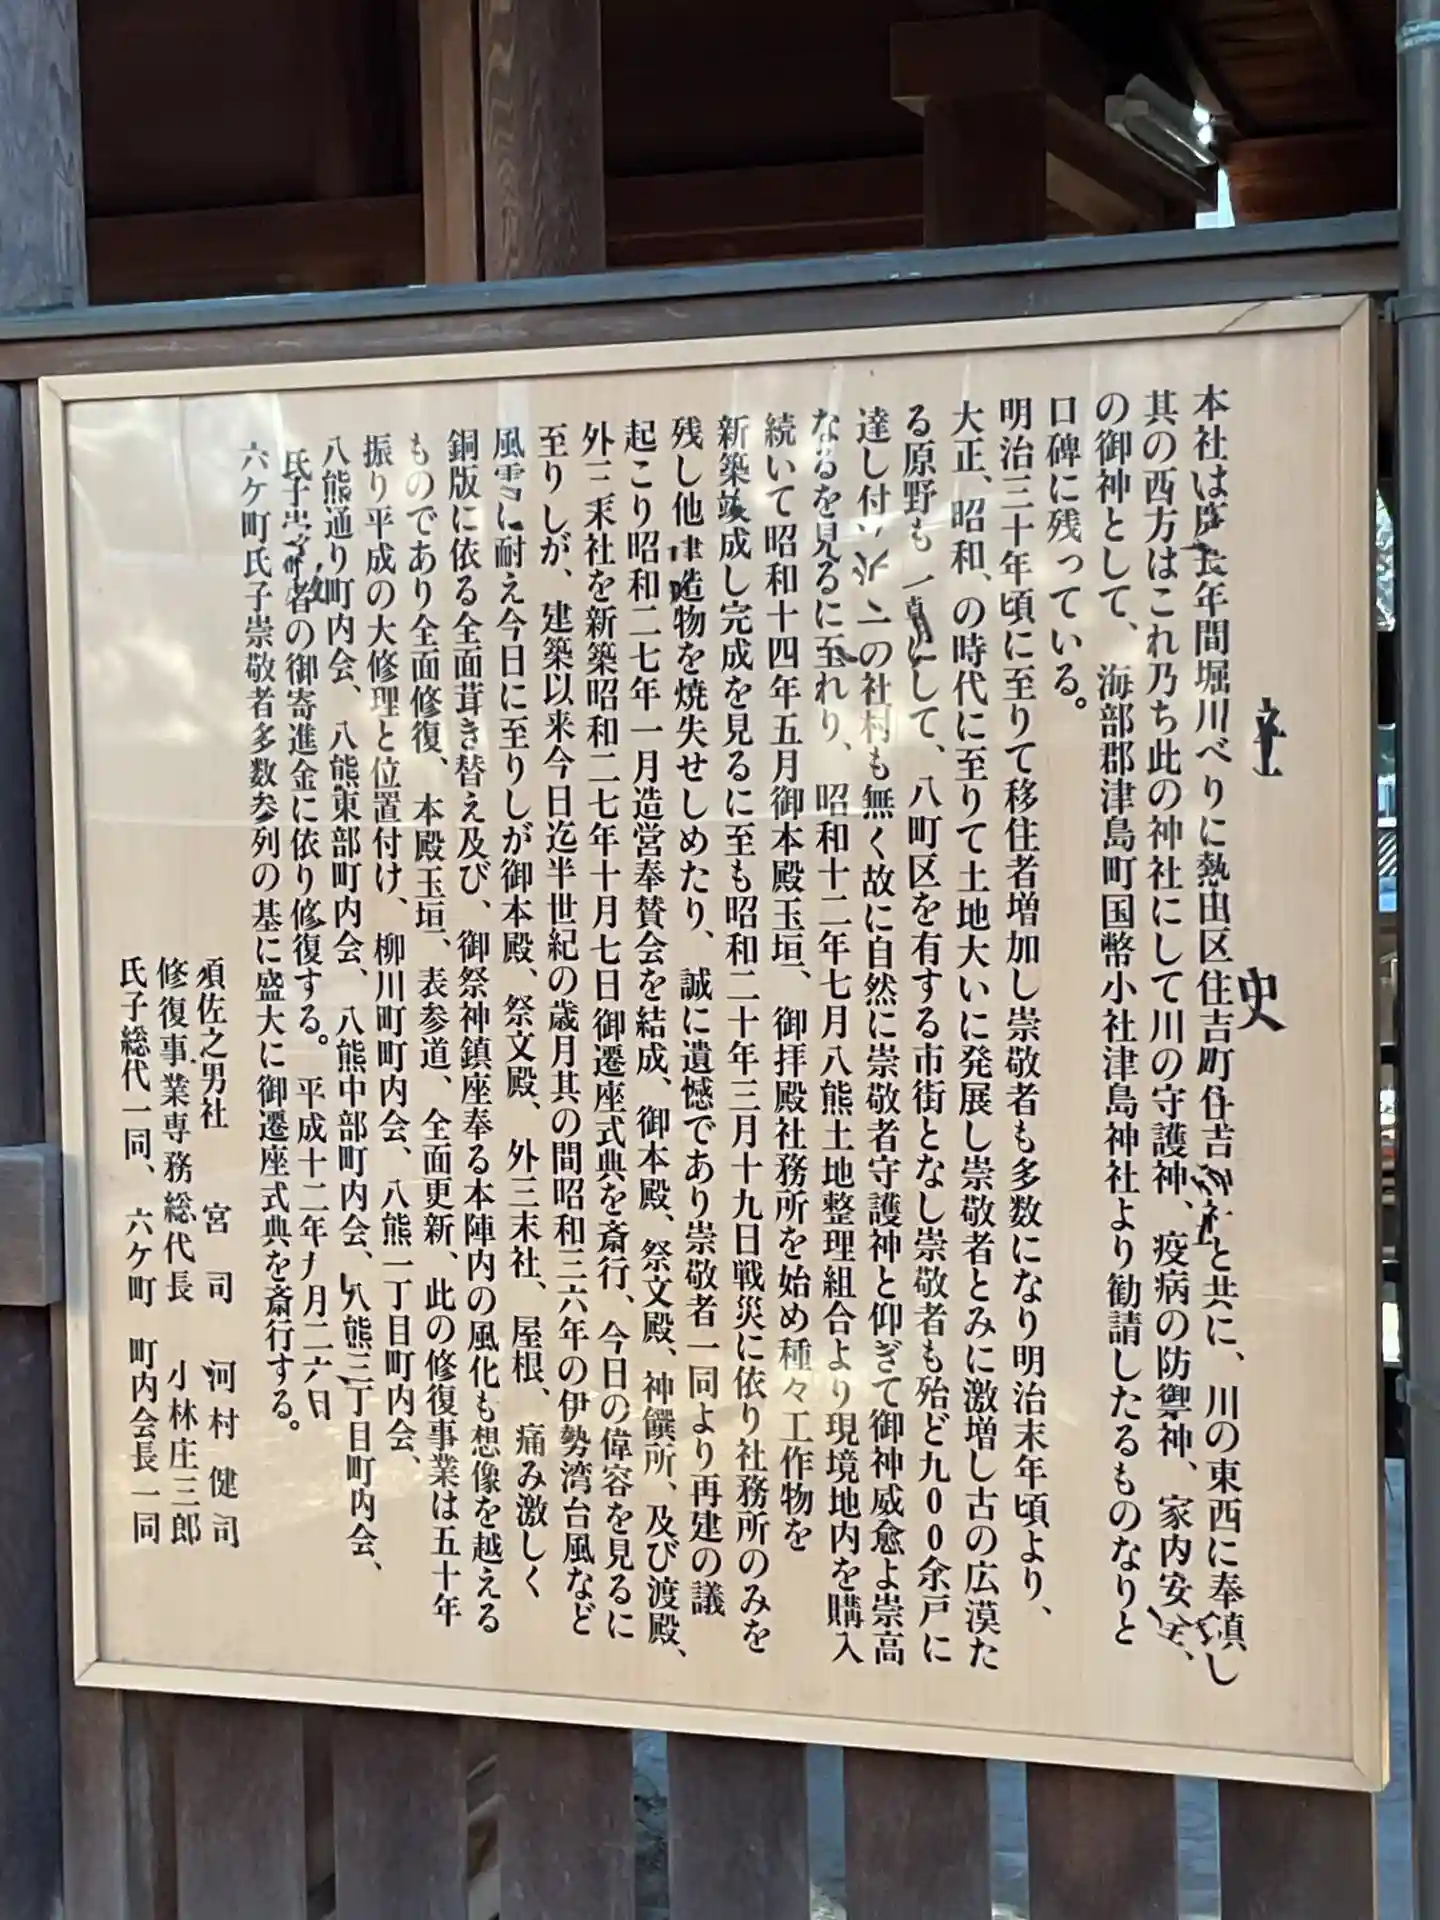 社 史
本社は慶長年間堀川べりに熱田区住吉町住吉神社と共に、川の東西に奉鎮し
其の西方はこれ乃ち此の神社にして川の守護神、疫病の防禦神、家内安全、
の御神として、海部郡津島町国幣小社津島神社より勧請したるものなりと
口碑に残っている。
明治三十年頃に至りて移住者増加し崇敬者も多数になり明治末年頃より、
大正、昭和、の時代に至りて土地大いに発展し崇敬者とみに激増し古の広漠た
る原野も一変して、八町区を有する市街となし崇敬者も殆ど九00余戸に
達し付 二の社村も無く故に自然に崇敬者守護神と仰ぎて御神威愈よ崇高
なるを見るに至れり、昭和十二年七月八熊土地整理組合より現境地内を購入
続いて昭和十四年五月御本殿玉垣、御拝殿社務所を始め種々工作物を
新築竣成し完成を見るに至も昭和二十年三月十九日戦災に依り社務所のみを
残し他建造物を焼失せしめたり、誠に遺憾であり崇敬者一同より再建の議
起こり昭和二七年一月造営奉賛会を結成、御本殿、祭文殿、神饌所、及び渡殿、
外三末社を新築昭和二七年十月七日御遷座式典を斎行、今日の偉容を見るに
至りしが、建築以来今日迄半世紀の歳月其の間昭和三六年の伊勢湾台風など
風雪に耐え今日に至りしが御本殿、祭文殿、外三末社、屋根、痛み激しく
銅版に依る全面茸き替え及び、御祭神鎮座奉る本陣内の風化も想像を越える
ものであり全面修復、本殿玉垣、表参道、全面更新、此の修復事業は五十年
振り平成の大修理と位置付け、柳川町町内会、八熊一丁目町内会、
八熊通り町内会、八熊東部町内会、八熊中部町内会、八熊三丁目町内会、
氏子崇敬者の御寄進金に依り修復する。平成十二年九月二六日
六ケ町氏子崇敬者多数参列の基に盛大に御遷座式典を斎行する。
須佐之男社 宮司 河村健司
修復事業専務総代長 小林庄三郎
氏子総代一同、六ケ町 町内会長一同